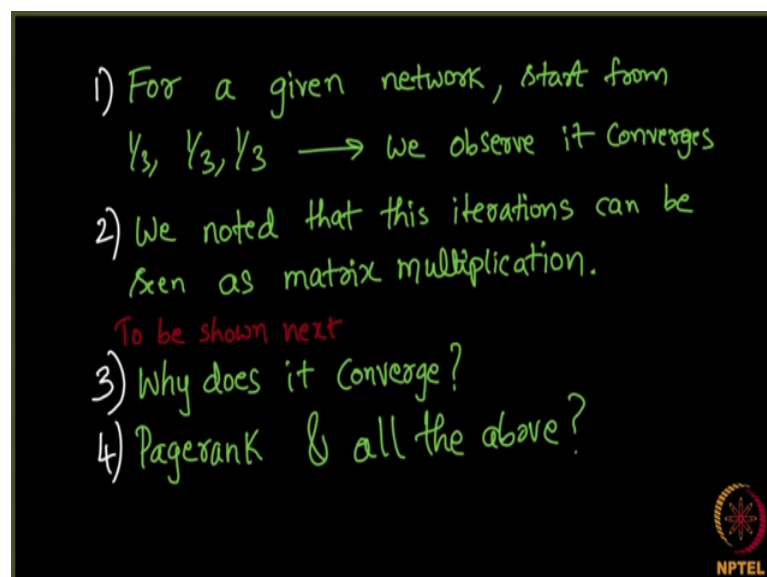 1) For a given network, start from
1/3, 1/3, 1/3 → we observe it converges
2) We noted that this iterations can be
seen as matrix multiplication.
To be shown next
3) Why does it converge?
4) Pagerank & all the above?
NPTEL